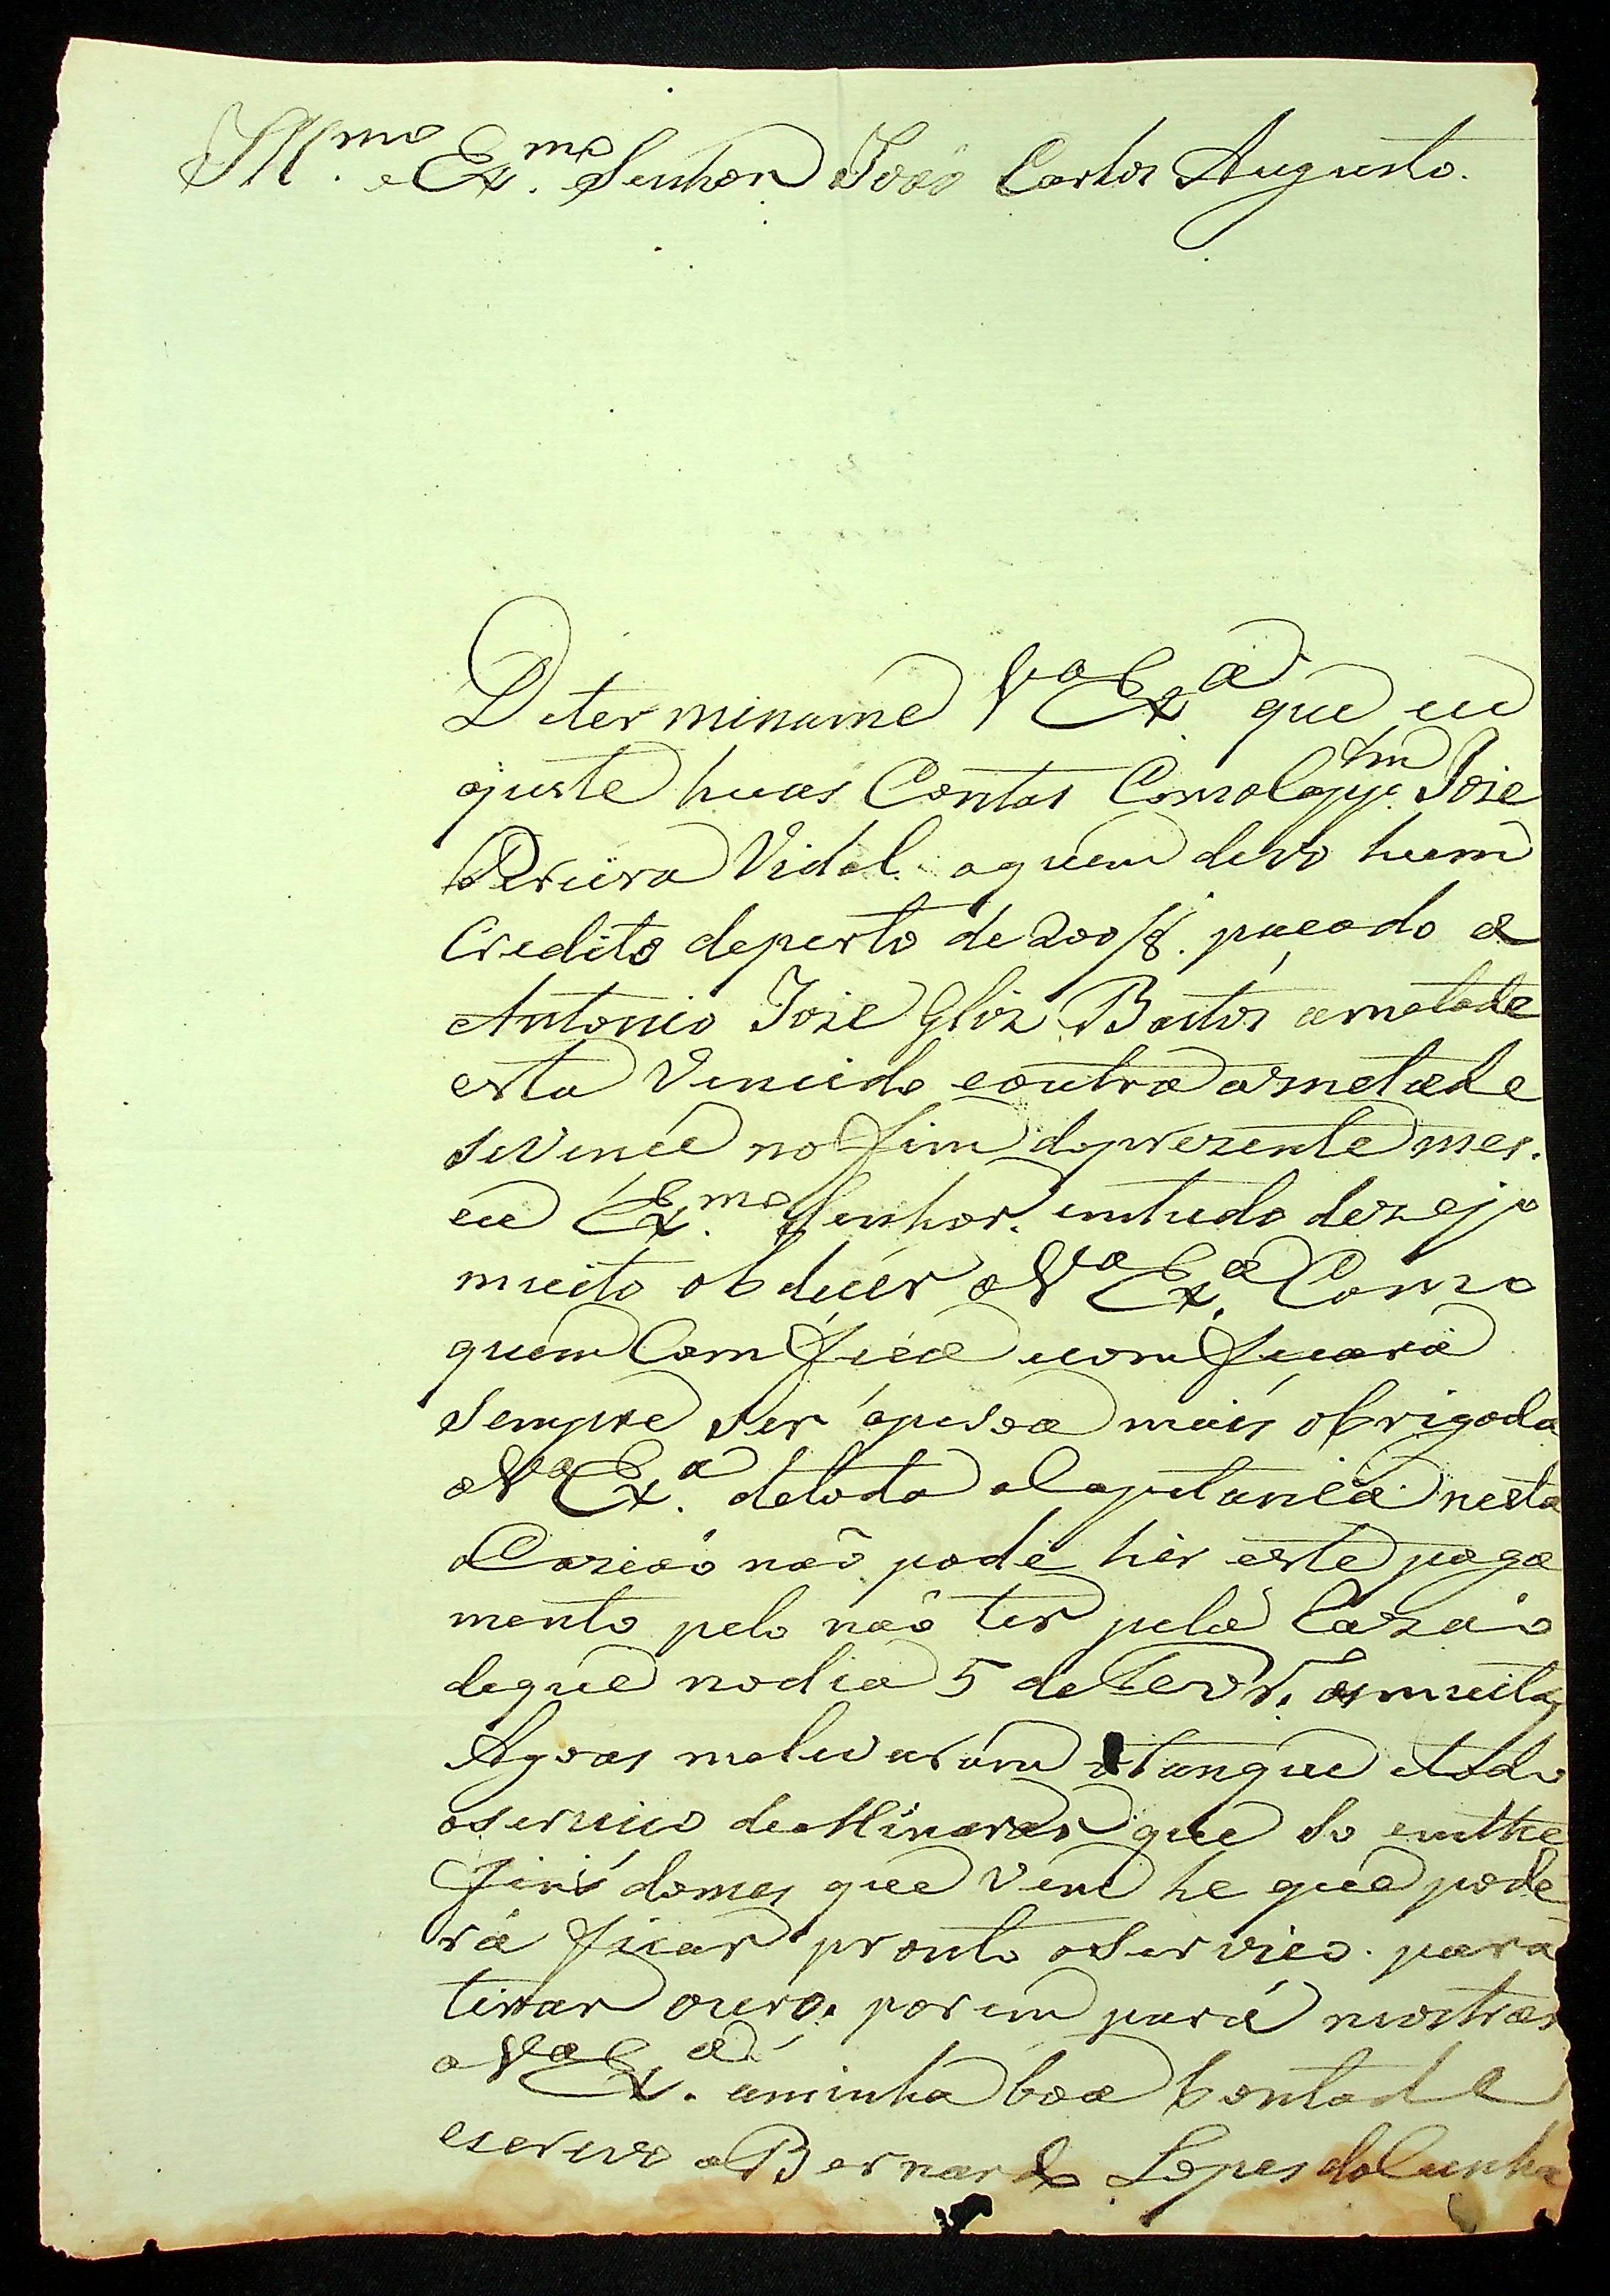 Ill.mo e Ex.mo Senhor João Carlos Augusto.
Determiname Va Ex.a que eu
ajuste huas Contas Como Cap.tm Joze
Pereira Vidal. aquem devo hum
Credito deperto de 200/8. pacado a
Antonio Joze Glz Bastos ametade
esta Vencido eoutra ametade
seVence no fim doprezente mes.
eu Ex.mo Senhor. emtudo dezejo
muito obdecer aVa Ex.a Como
quem Com feça econfeçara
sempre ser apesoa mais obrigada
aVa Ex.a detoda aCapitania nesta
oCazião não pode hir este paga
mento pelo não ter pela Cazaõ
deque nodia 5 de Fevr. as muitas
Agoas melevarão otanque etodo
oserviço deMinerar que so emthe
fins domes que Vem he que pode
rá ficar pronto oServico. para
tirrar ouro. porem para mostrar
aVa Ex.a aminha boa bontade
escrevo aBernardo Lopes daCunha